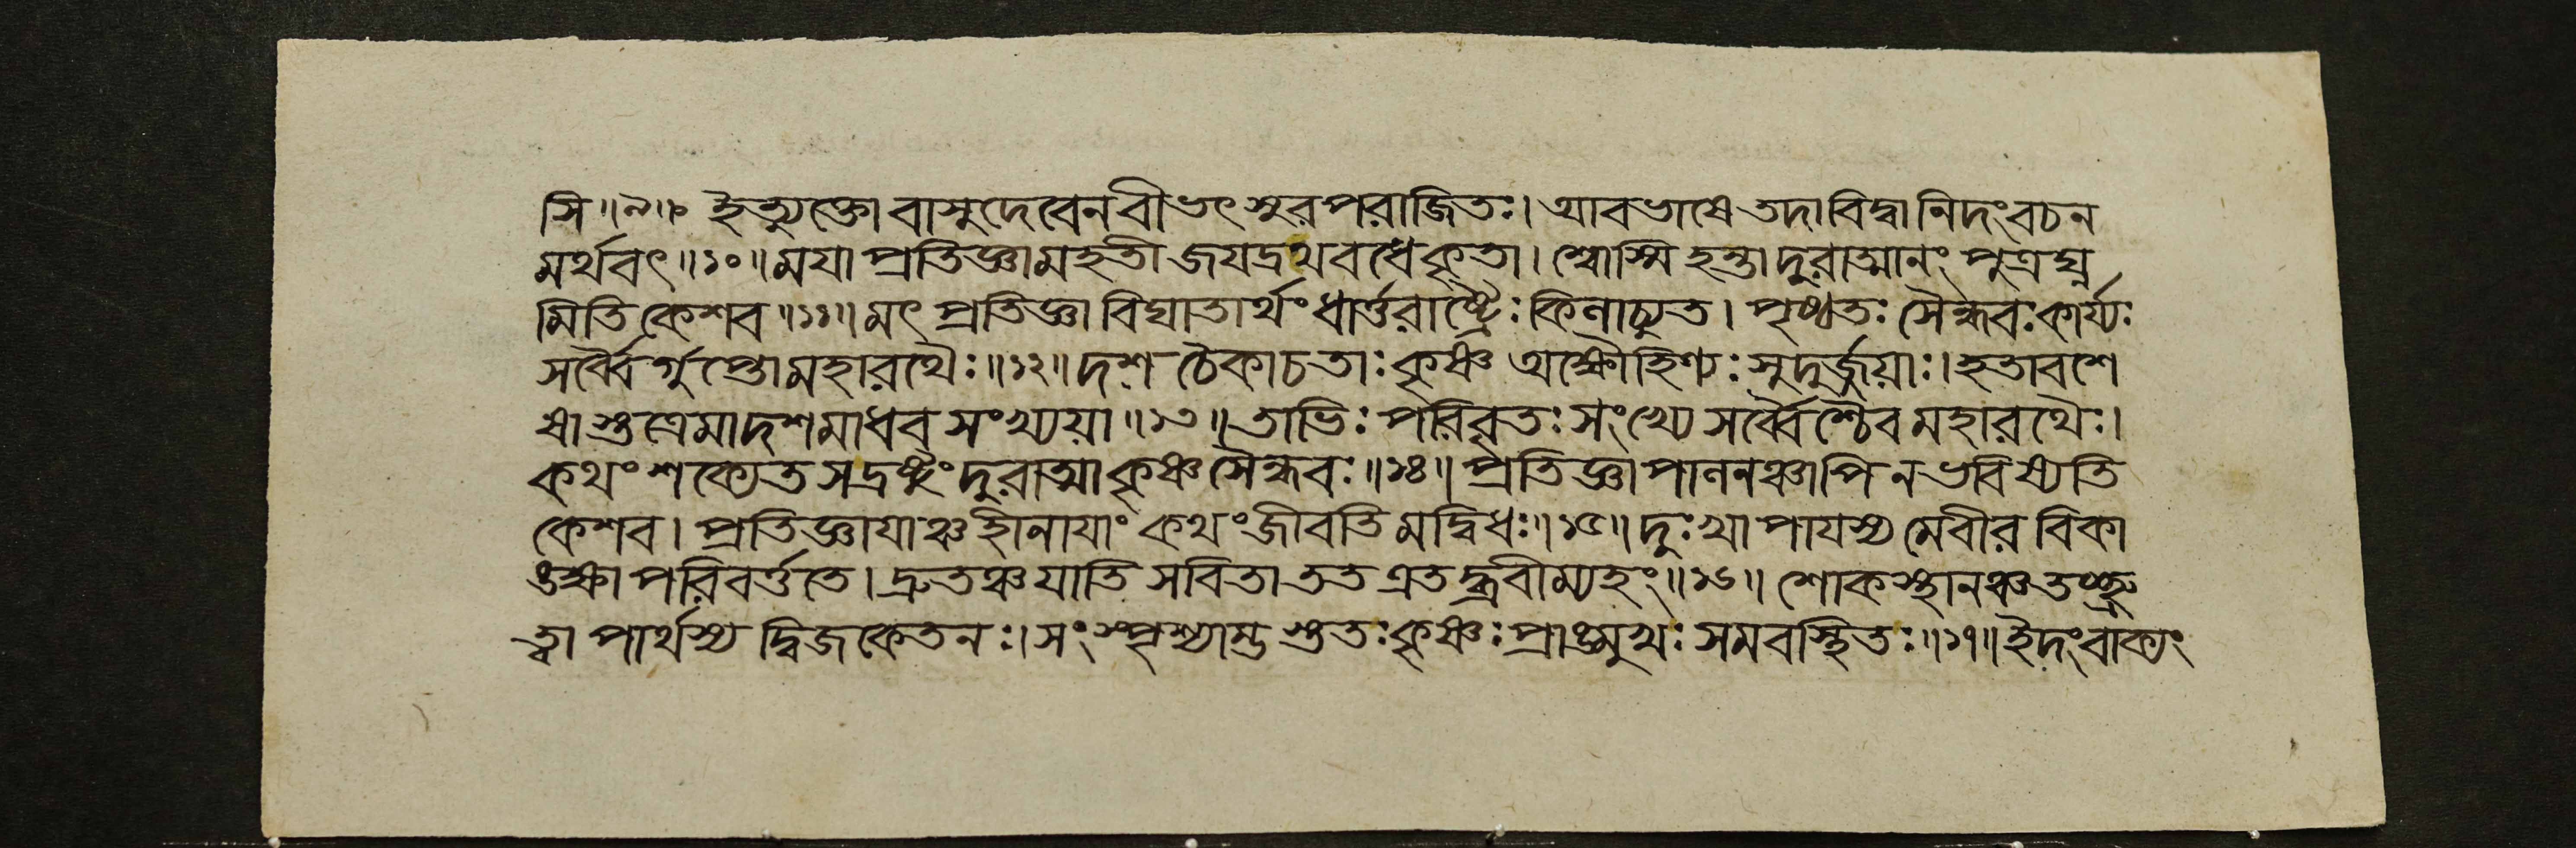 সি॥৯॥ ইত্যুক্তো বাসুদেবেন বীভৎসুরপরাজিতঃ। আবভাষে তদা বিদ্বানিদং বচন
মর্থবৎ॥১০॥ ময়া প্রতিজ্ঞা মহতী জয়দ্রথবধে কৃতা। শ্বোস্মি হন্তা দুরাত্মানং পুত্রঘ্ন
মিতি কেশব॥১১॥ মৎ প্রতিজ্ঞা বিঘাতার্থং ধার্ত্তরাষ্ট্রৈঃ কিলাচ্যুত। পৃষ্ঠতঃ সৈন্ধবঃ কার্য্যঃ
সর্ব্বৈর্গুপ্তো মহারথৈঃ॥১২॥ দশ চৈকা চ তাঃ কৃষ্ণ অক্ষৌহিণ্যঃ সুদুর্জ্জয়াঃ। হতাবশে
ষাস্তত্রেমা দশ মাধব সংখ্যয়া॥১৩॥ তাভিঃ পরিবৃতঃ সংখ্যে সর্ব্বৈশ্চৈব মহারথৈঃ।
কথং শক্যেত সদ্রষ্টুং দুরাত্মা কৃষ্ণ সৈন্ধবঃ॥১৪॥ প্রতিজ্ঞাপালনঞ্চাপি ন ভবিষ্যেতি
কেশব। প্রতিজ্ঞায়াঞ্চ হীনায়াং কথং জীবতি মদ্বিধঃ॥১৫॥ দুঃখাপায়স্য মে বীর বিকা
ঙ্ক্ষা পরিবর্ত্ততে। দ্রুতঞ্চ যাতি সবিতা তত এতদ্ব্রবীম্যহং॥১৬॥ শোকস্থানঞ্চ তচ্ছ্রু
ত্বা পার্থস্য দ্বিজকেতনঃ। সংস্পৃশ্যাম্ভস্ততঃ কৃষ্ণঃ প্রাঙ্মুখঃ সমবস্থিতঃ॥১৭॥ ইদং বাক্যং